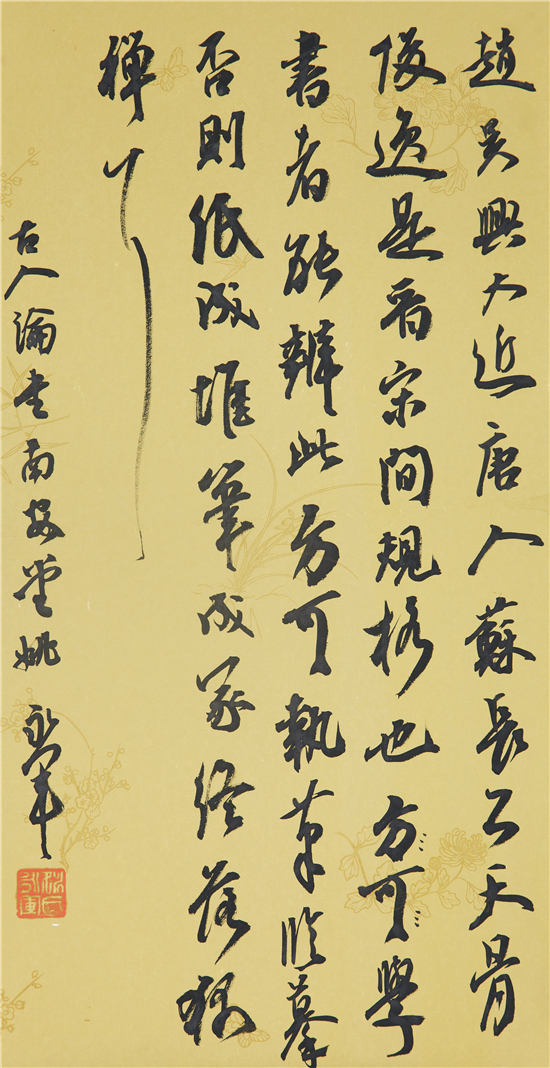 趙吳興大近唐人蘇長公天骨
俊逸是晉宋間規格也方可學
書者能辨此方可執筆臨摹
否則紙成堆筆成冢終落狐
禪耳
古人論書南安堂姚永军